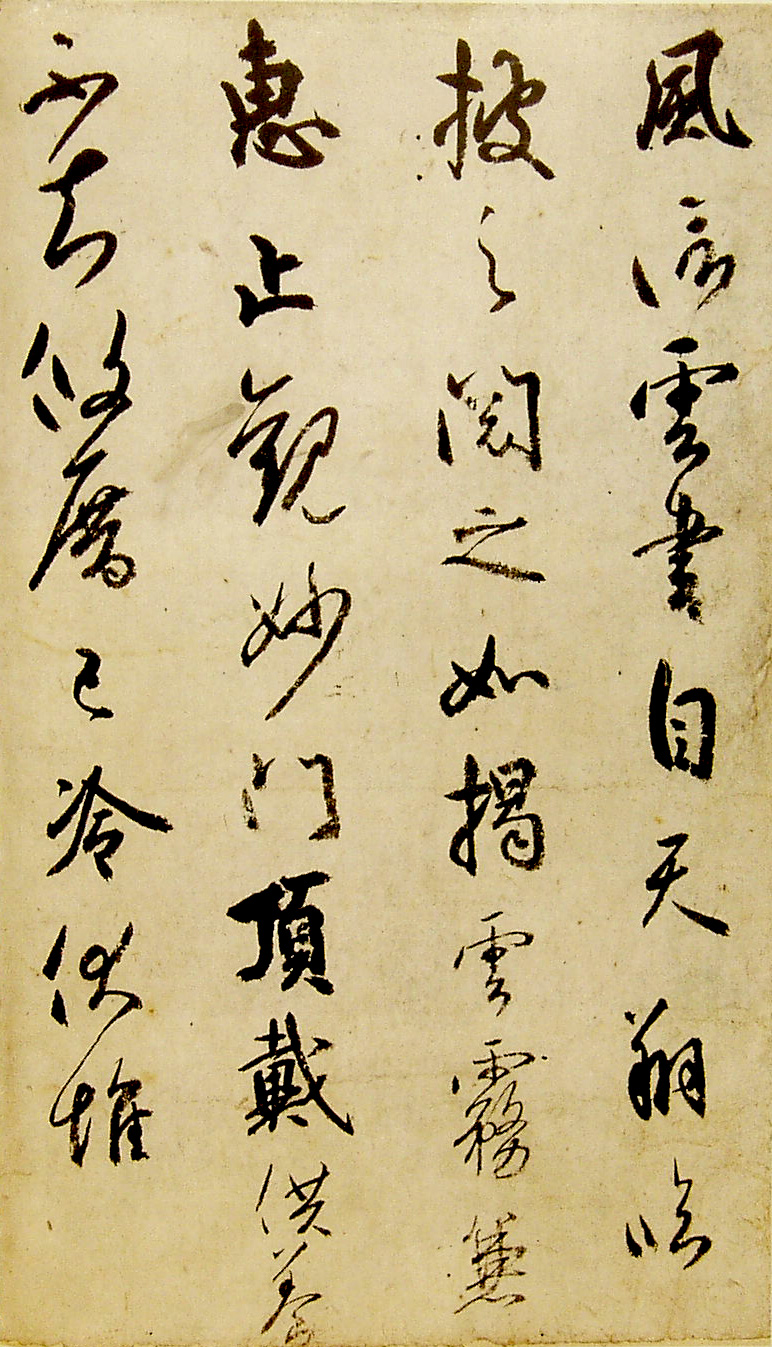 風信雲書自天翔臨
披之閱之如揭雲霧兼
惠止觀妙門頂戴供養
不知攸厝已冷伏惟